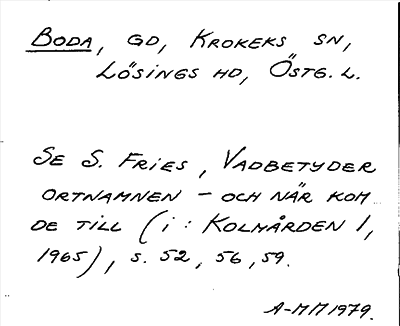 BODA, GD, KROKEKS SN,
LÖSINGS HD, ÖSTG. L.
SE S. FRIES, VAD BETYDER
ORTNAMNEN - OCH NÄR KOM
DE TILL (i: KOLMÅRDEN 1,
1965), S. 52, 56, 59.
A-MM 1979.